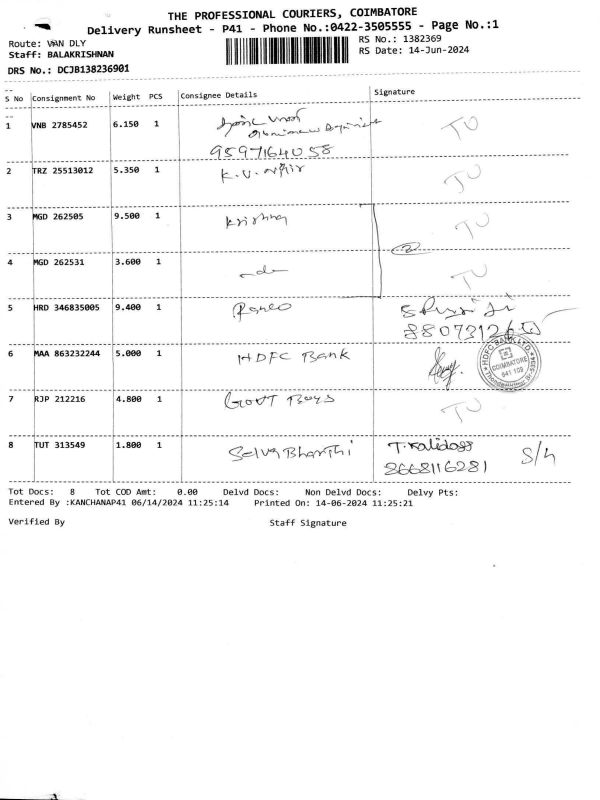 THE PROFESSIONAL COURIERS, COIMBATORE
Delivery Runsheet - P41 - Phone No.:0422-3505555 - Page No.:1
Route: VAN DLY
RS No.: 1382369
Staff: BALAKRISHNAN
RS Date: 14-Jun-2024
DRS No.: DCJB138236901
S No Consignment No Weight PCS Consignee Details Signature
1 VNB 2785452 6.150 1
9597164058
2 TRZ 25513012 5.350 1 K.V. Nair
3 MGD 262505 9.500 1 Krishna
4 MGD 262531 3.600 1
5 HRD 346835005 9.400 1
6 MAA 863232244 5.000 1 HDFC Bank
HDFC BANK LTD
COIMBATORE
641 109
7 RJP 212216 4.800 1 GOVT Boys
8 TUT 313549 1.800 1 Selva Bharathi T. Kalidass S/h
2668116281
Tot Docs: 8 Tot COD Amt: 0.00 Delvd Docs: Non Delvd Docs: Delvy Pts:
Entered By :KANCHANAP41 06/14/2024 11:25:14 Printed On: 14-06-2024 11:25:21
Verified By Staff Signature